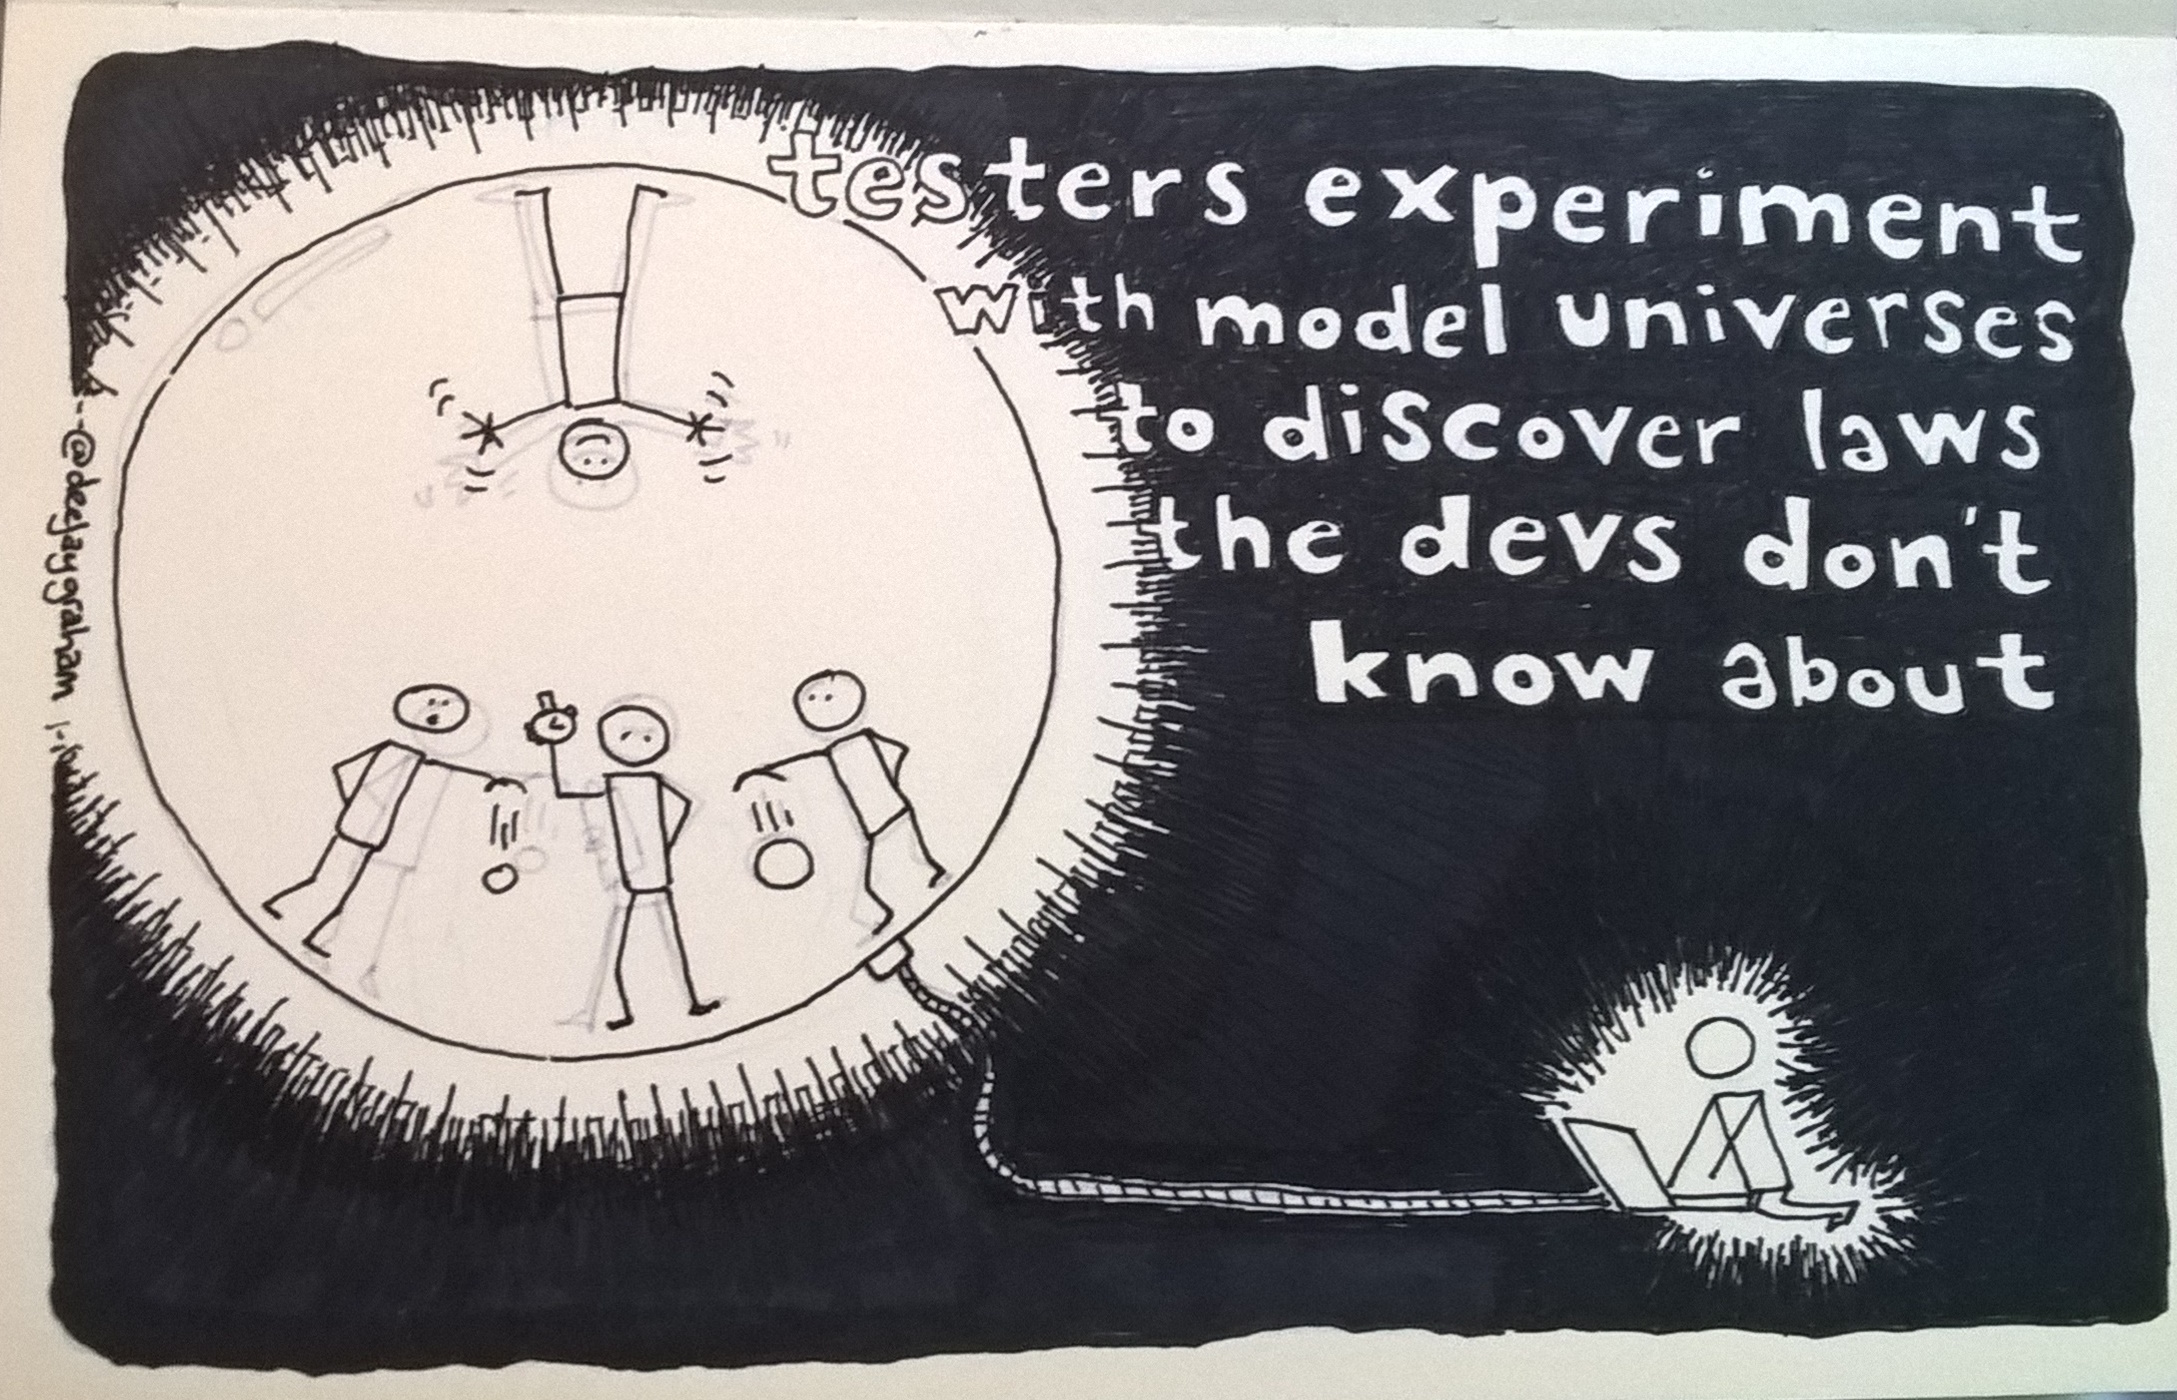 testers experiment
with model universes
to discover laws
the devs don't
know about
@deejaygraham